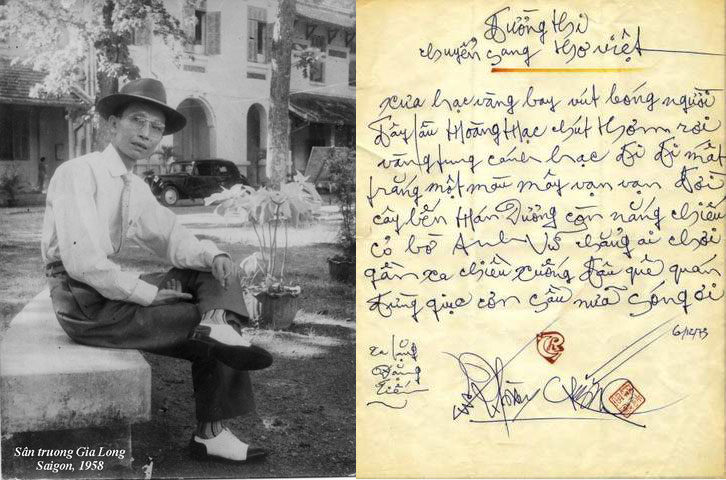 Sân truong Gia Long
Saigon, 1958
Đường thi
chuyển sang thơ việt
xưa hạc vàng bay vút bóng người
đây lầu Hoàng Hạc chút thơm rơi
vàng tung cánh hạc đi đi mất
trắng một màu mây vạn vạn đời
cây bến Hán Dương còn nắng chiếu
cỏ bờ Anh Vũ chẳng ai chơi
gần xa chiều xuống đâu quê quán
đừng giục cơn sầu nữa sóng ơi
6/12/73
tặng
Đặng
Tiến
Hoàng Chương